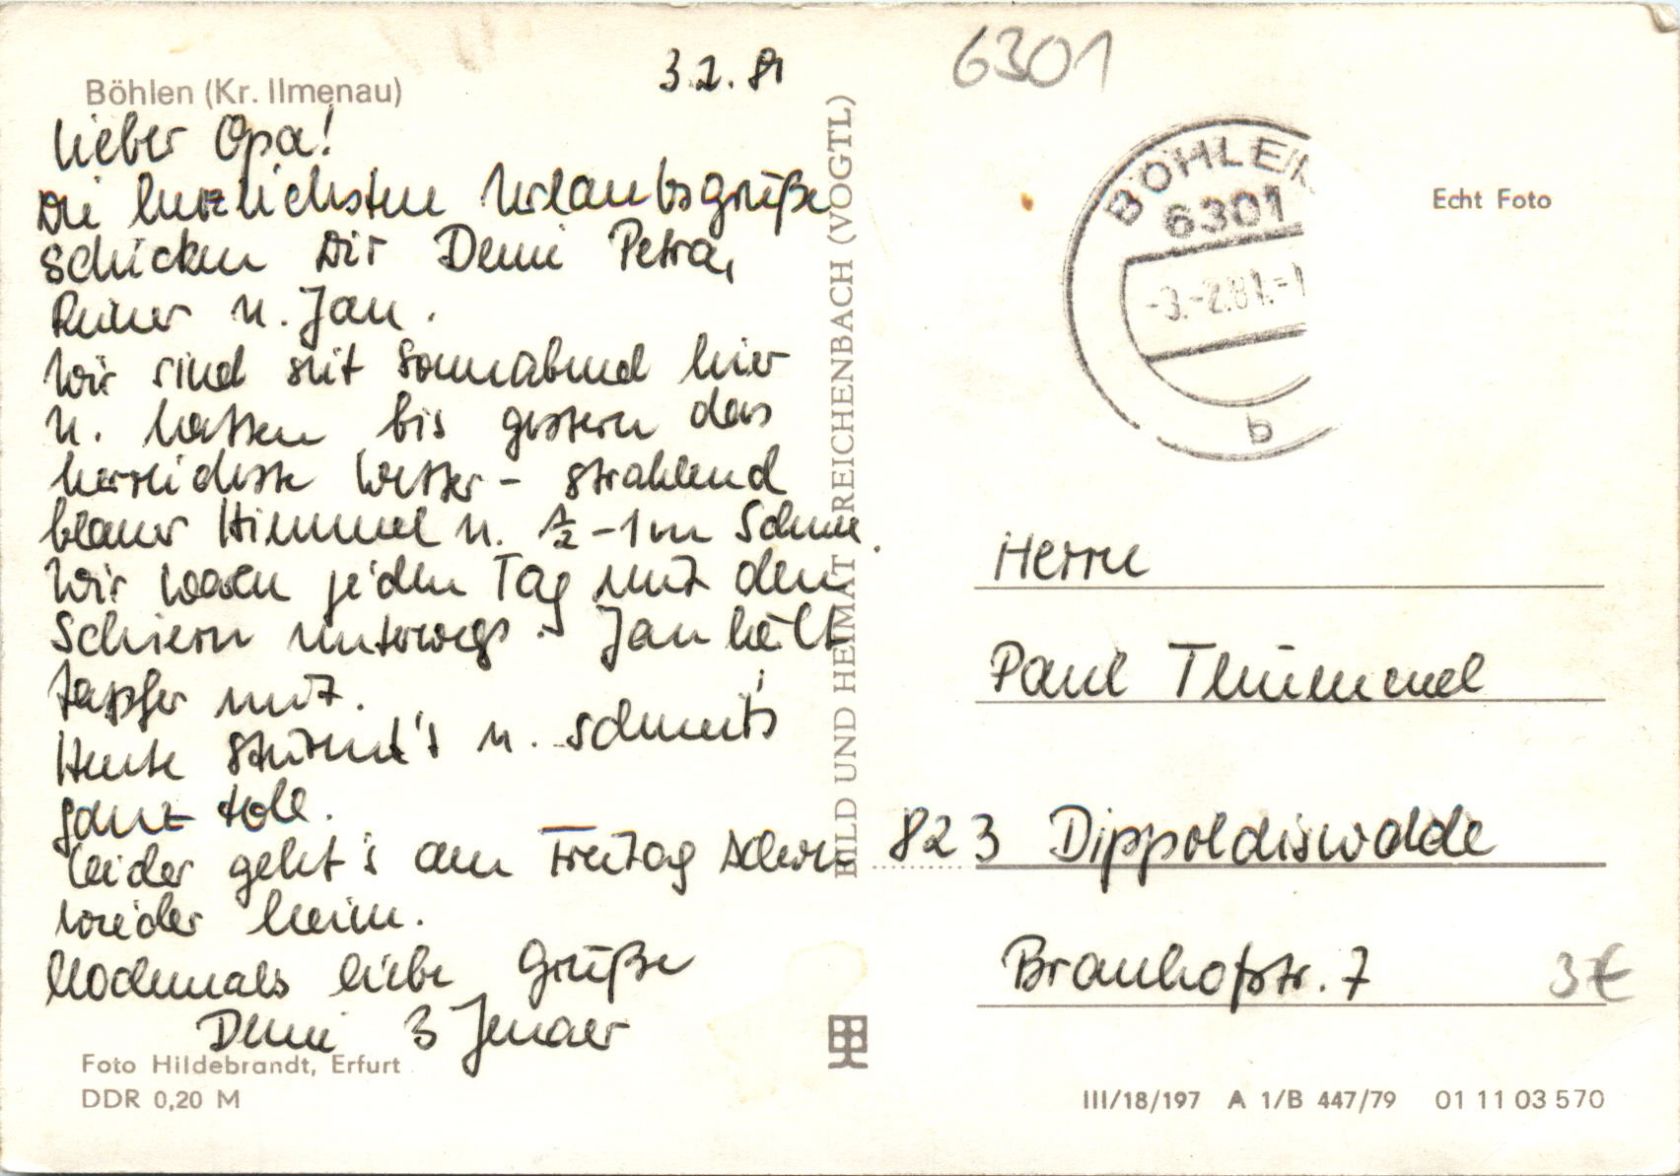 Böhlen (Kr. Ilmenau)
3.2.81
Lieber Opa!
Die herzlichsten Urlaubsgrüße
schicken Dir Deine Petra,
Reiner u. Jan.
Wir sind seit Sonnabend hier
u. hatten bis gestern das
herrlichste Wetter - strahlend
blauer Himmel u. 1/2 - 1 m Schnee.
Wir waren jeden Tag mit den
Schiern unterwegs. Jan hält
tapfer mit.
Heute stürmt's u. schneit's
ganz toll.
Leider geht's am Freitag schon
wieder heim.
Nochmals liebe Grüße
Deine 3 Jenaer
Foto Hildebrandt, Erfurt
DDR 0,20 M
BILD UND HEIMAT REICHENBACH (VOGTL)
6301
BÖHLEN
6301
-3.-2.81.-1
b
Echt Foto
Herrn
Paul Thümmel
823 Dippoldiswalde
Brauhofstr. 7
3€
III/18/197 A 1/B 447/79 01 11 03 570